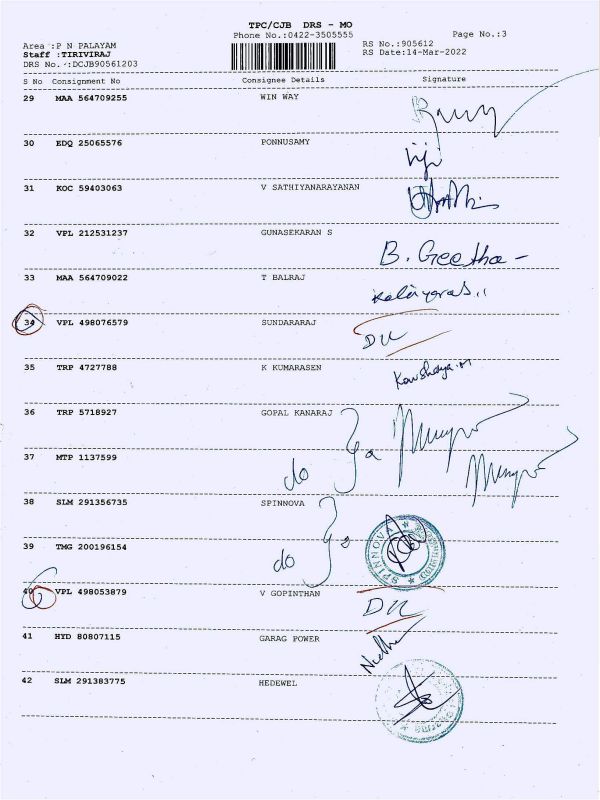 TPC/CJB DRS - MO
Phone No.:0422-3505555
Page No.:3
Area :P N PALAYAM
RS No.:905612
Staff :TIRIVIRAJ
RS Date:14-Mar-2022
DRS No.:DCJB90561203
S No Consignment No Consignee Details Signature
29 MAA 564709255 WIN WAY
30 EDQ 25065576 PONNUSAMY
31 KOC 59403063 V SATHIYANARAYANAN
32 VPL 212531237 GUNASEKARAN S B. Geetha -
33 MAA 564709022 T BALRAJ
34 VPL 498076579 SUNDARARAJ
35 TRP 4727788 K KUMARASEN
36 TRP 5718927 GOPAL KANARAJ
37 MTP 1137599 do
38 SLM 291356735 SPINNOVA
39 TMG 200196154 do SPINNOVA
40 VPL 498053879 V GOPINTHAN
41 HYD 80807115 GARAG POWER
42 SLM 291383775 HEDEWEL